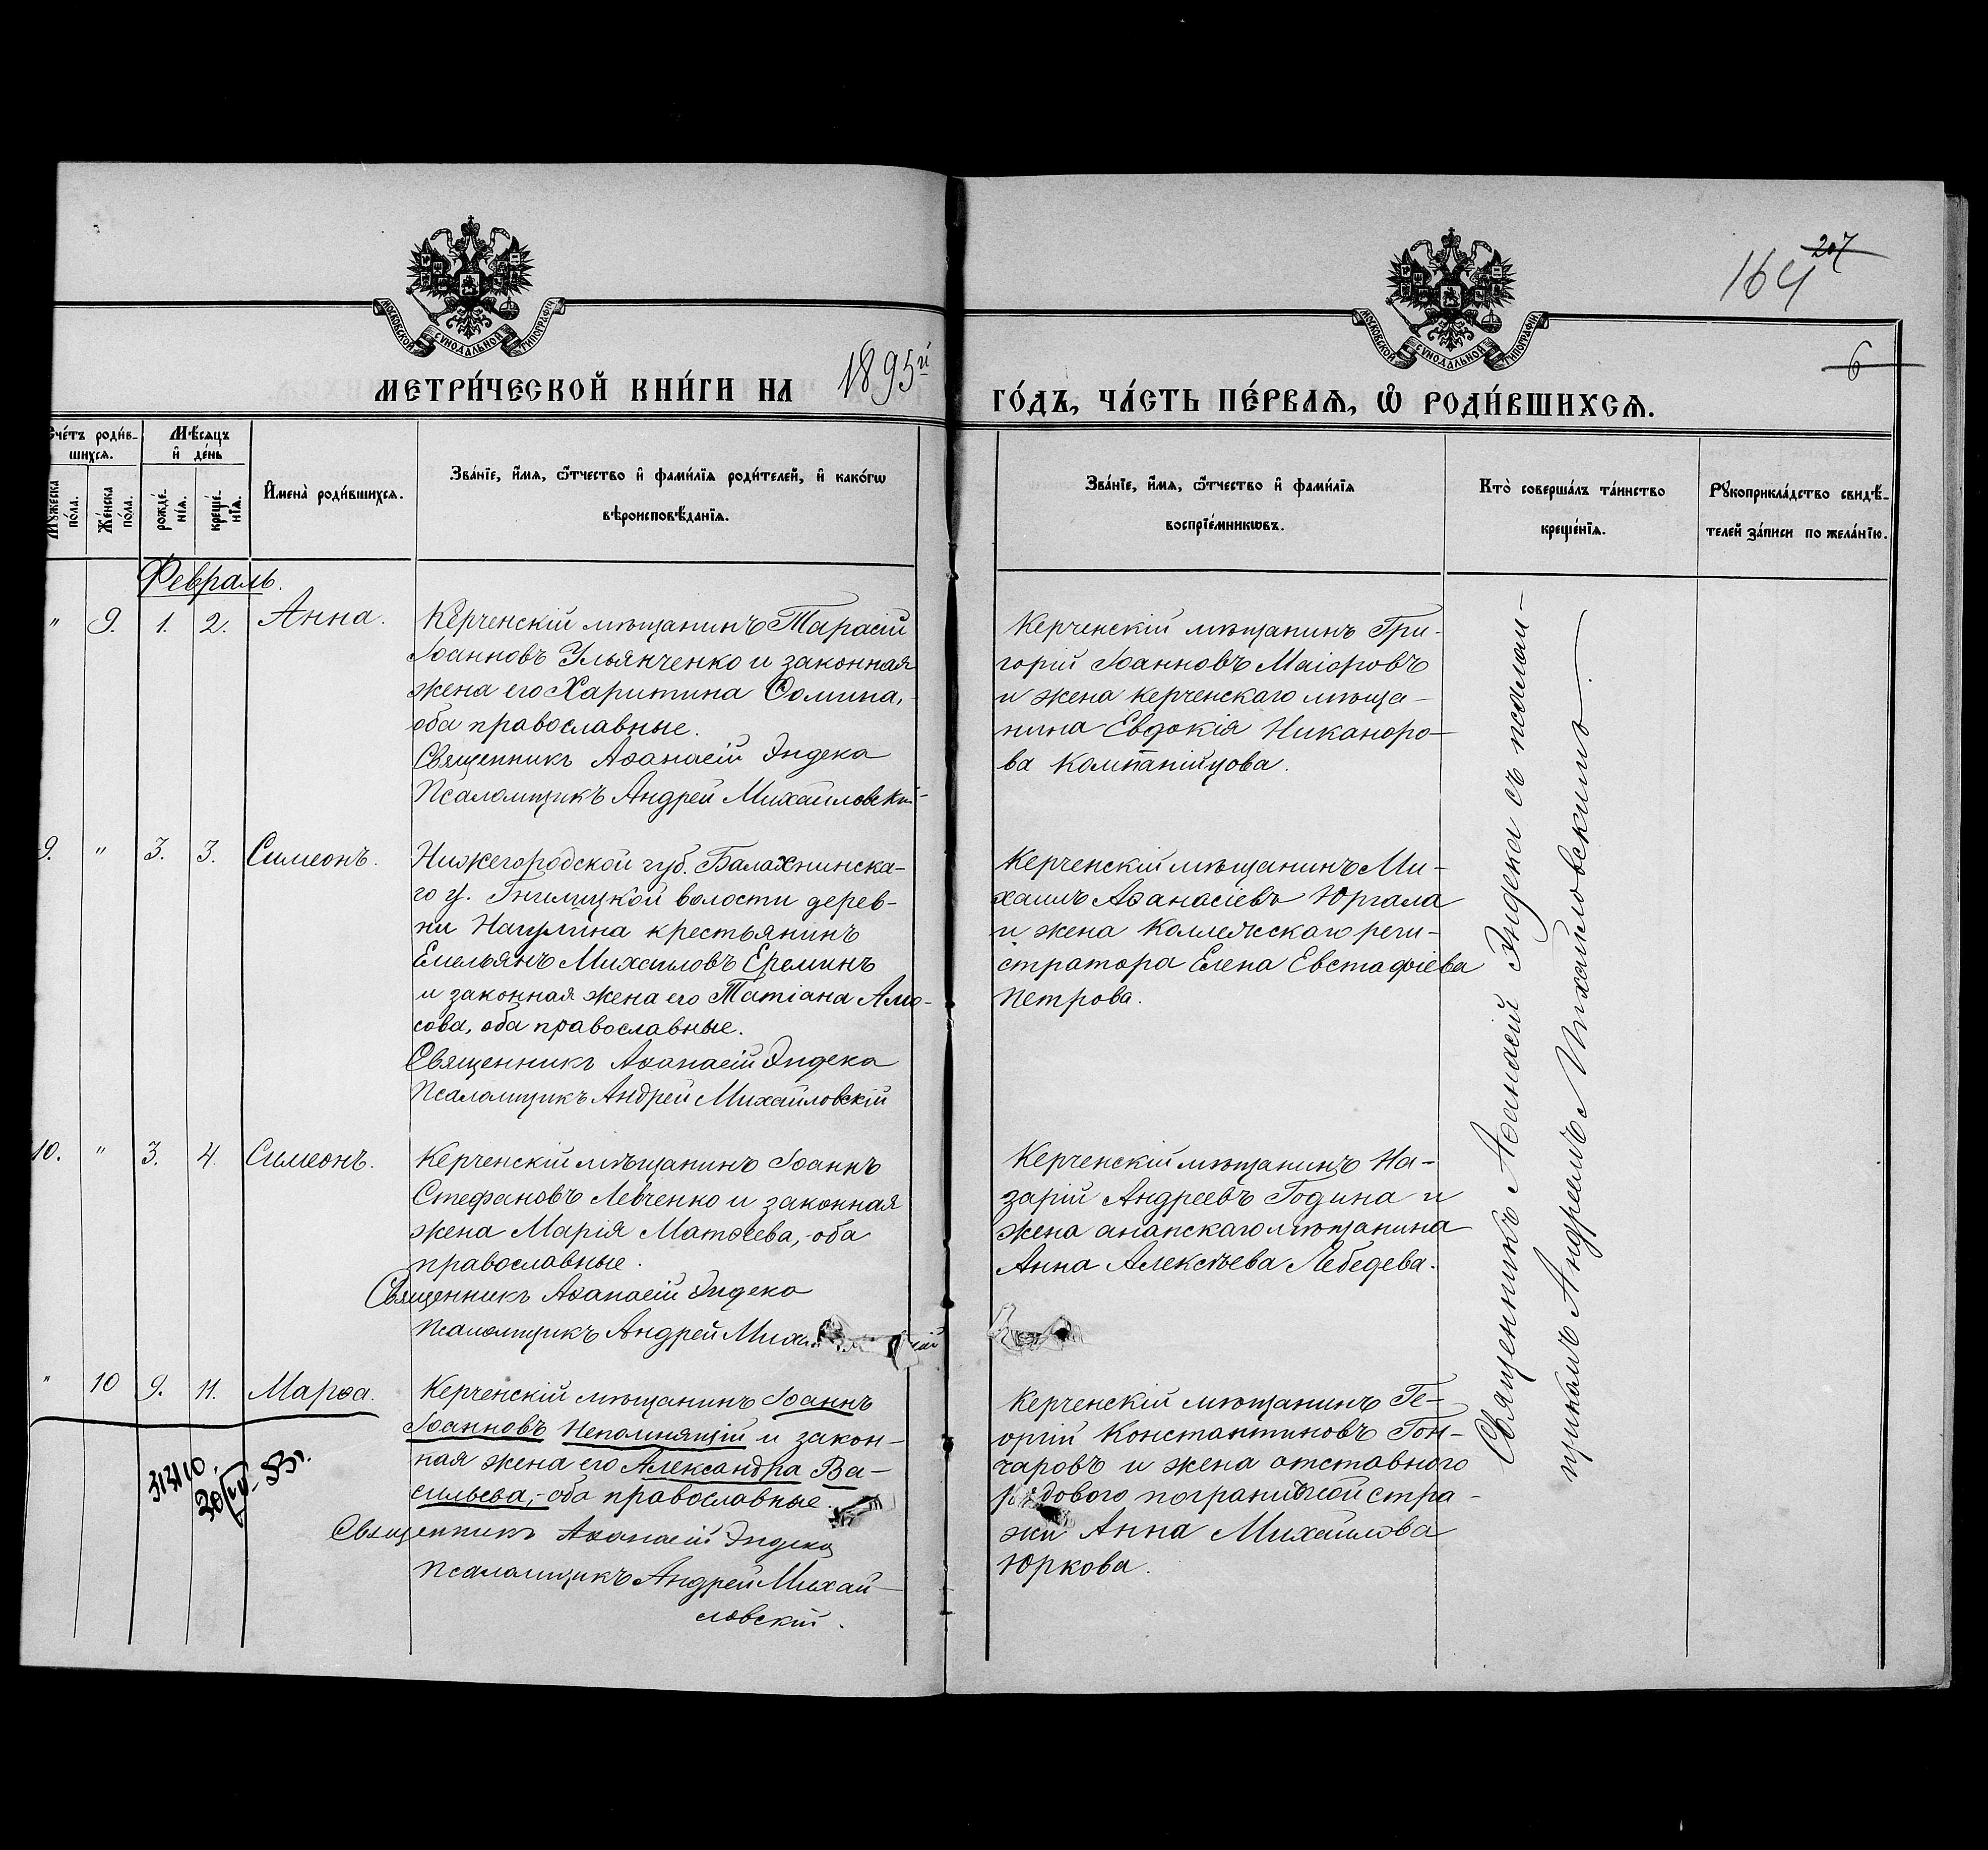 164 207
6
МОСКОВСКОЙ СѴНОДАЛЬНОЙ ТИПОГРАФІИ
МОСКОВСКОЙ СѴНОДАЛЬНОЙ ТИПОГРАФІИ
МЕТРИ́ЧЕСКОЙ КНИ́ГИ НА 1895й
ГО́ДЪ, ЧА́СТЬ ПЕ́РВАЯ, Ѡ РОДИ́ВШИХСЯ.
Счéтъ роди́в-
шихся.
Мѣ́сяцъ
и дéнь
Мꙋ́жеска
пóла.
Жéнска
пóла.
рождé-
нїя.
крещé-
нїя.
Именà роди́вшихся.
Звáнїе, и́мя, ѻ́тчество и фами́лїя роди́телей, и какóгѡ
вѣроисповѣ́данїя.
Звáнїе, и́мя, ѻ́тчество и фами́лїя
воспрїéмникѡвъ.
Ктò совершáлъ тáинство
крещéнїя.
Рꙋкоприклáдство свидѣ́-
телей зáписи по желáнїю.
Февраль.
" 9. 1. 2. Анна.
Керченскій мѣщанинъ Тарасій
Іоанновъ Ульянченко и законная
жена его Харитина Ѳомина,-
оба православные.
Священникъ Аѳанасій Эндека
Псаломщикъ Андрей Михайловскій
Керченскій мѣщанинъ Гри-
горій Іоанновъ Маіоровъ
и жена керченскаго мѣща-
нина Евдокія Никаноро-
ва Компанійцова.
9. " 3. 3. Симеонъ.
Нижегородской губ. Балахнинска-
го у. Гнилицкой волости дерев-
ни Нагулина крестьянинъ
Емельянъ Михаиловъ Ереминъ
и законная жена его Татіана Амо-
сова, оба православные.
Священникъ Аѳанасій Эндека
Псаломщикъ Андрей Михайловскій
Керченскій мѣщанинъ Ми-
хаилъ Аѳанасіевъ Юргала
и жена Коллежскаго реги-
стратора Елена Евстафіева
Петрова.
10. " 3. 4. Симеонъ.
Керченскій мѣщанинъ Іоаннъ
Стефановъ Левченко и законная
жена Марія Матѳеева,-оба
православные.
Священникъ Аѳанасій Эндека
Псаломщикъ Андрей
Керченскій мѣщанинъ На-
зарій Андреевъ Година и
жена анапскаго мѣщанина
Анна Алексѣева Лебедева.
" 10 9. 11. Марѳа.
Керченскій мѣщанинъ Іоаннъ
Іоанновъ Непомнящій и закон-
ная жена его Александра Ва-
сильева,-оба православные.
Священникъ Аѳанасій Эндека
Псаломщикъ Андрей Михай-
ловскій.
Керченскій мѣщанинъ Ге-
оргій Константиновъ Гон-
чаровъ и жена отставного
рядового пограничной стра-
жи Анна Михайлова
Юркова.
Священникъ Аѳанасій Эндека съ псалом-
щикомъ Андреемъ Михайловскимъ.